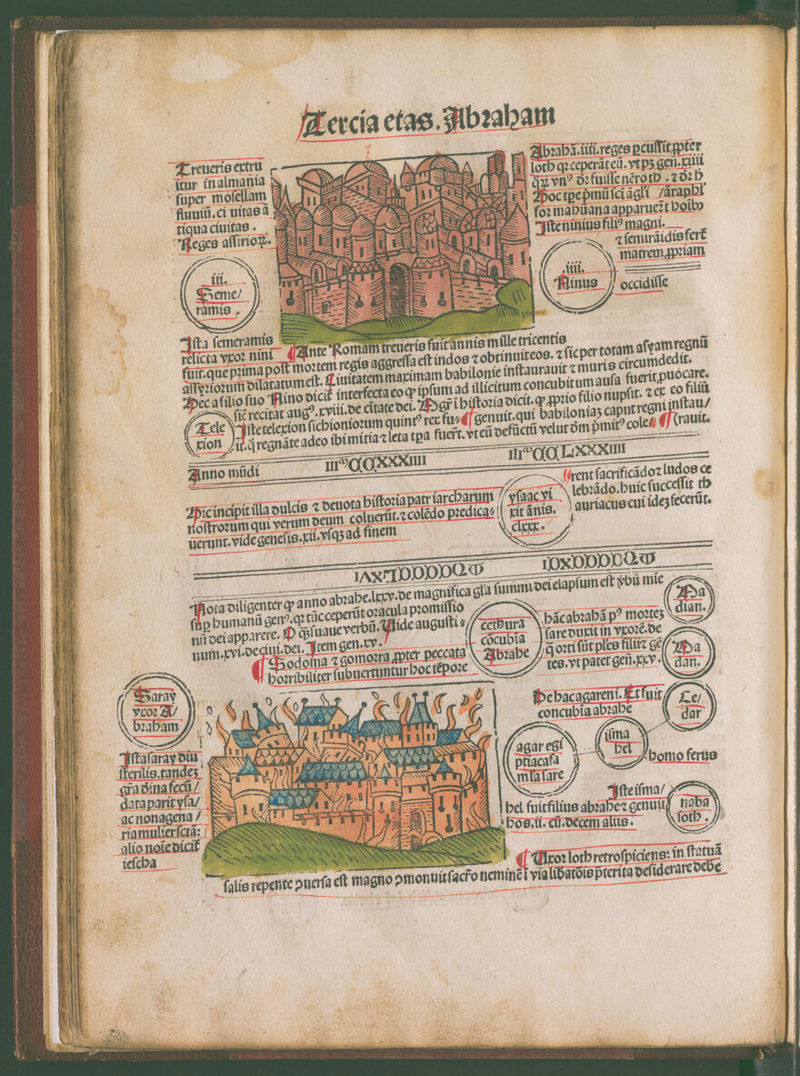 Tercia etas. Abraham
Treueris extru
itur in almania
super mosellam
fluuiū. ci uitas ā
tiqua ciuitas.
Reges assirioꝝ.
Abrahā. iiii. reges ꝑcussit ꝓpter
loth qꝛ ceperāt eū. vt pꝫ gen. xiiii
Hoc tꝑe p̄mū sci āgl'i /ī āraphl'
for ma hūana apparuer̄t hoībꝫ
Iste ninius fili⁹ magni.
⁊ semirāidis fert̄
matrem ꝓpriam
occidisse
iii.
Seme/
ramis.
.iiii.
Ninus
Ista semeramis
relicta vxor nini ¶ Ante Romam treueris fuit annis mille tricentis
fuit. que prima post mortem regis aggressa est indos ⁊ obtinuit eos. ⁊ sic per totam asyam regnū
assyriorum dilatatum est. Ciuitatem maximam babilonie instaurauit ⁊ muris circumdedit.
Hec a filio suo Nino dicit̄ interfecta eo ꝙ ipsum ad illicitum concubitum ausa fuerit ꝓuocare.
sic̄ recitat aug⁹. xviii. de ciuitate dei. Mgr̄ ī historia dicit. ꝙ ꝓprio filio nupsit. ⁊ ex eo filiū
Tele
xion
Iste telexion sichioniorum quint⁹ rex fu⸗ ¶ genuit. qui babilonias caput regni instau/
it. q̄ regnāte adeo ibi mitia ⁊ leta tꝑa fuer̄t. vt eū defūctū velut dm̄ p̄mit⁹ cole⸗ ¶ (rauit.
Anno mūdi
IIIᵐCCXXXIIII
IIIᵐCCLXXXIIII
Hic incipit illa dulcis ⁊ deuota historia patriarcharum
nostrorum qui verum deum coluerūt. ⁊ colēdo predica⸗
uerunt. vide genesis. xii. vsqꝫ ad finem
ysaac vi
xit ānis.
clxxx.
(rent sacrificādo ⁊ ludos ce
lebrādo. huic successit th
auriacus cui ideꝫ fecerūt.
Nota diligenter ꝙ anno abrahe. lxxv. de magnifica gl'a summi dei elapsum est ꝟbū mie
suꝑ humanū gen⁹. qꝛ tūc ceperūt oracula promissio
nū dei apparere. O ꝙ̄ suaue verbū. Vide augusti⸗
num. xvi. de ciui. dei. Item gen. xv.
¶ Sodoma ⁊ gomorra ꝓpter peccata
horribiliter subuertuntur hoc tēpore
cethura
cōcubia
Abrahe
hāc abrahā p⁹ morteꝫ
sare duxit in vxorē. de
q̄ orti sūt ples filii ⁊ gē
tes. vt patet gen. xxv.
Ma
dian.
Ma
dan.
Saray
vxor A/
braham
Ista saray diu
sterilis. tandeꝫ
gr̄a diuina fecū/
data parit ysa/
ac nonagena/
ria mulier sctā:
alio noīe dicit̄
iescha
De hac agareni. Et fuit
concubia abrahe
Ce/
dar
agar egi
ptiaca fa
mula sare
isma
hel
homo ferus
Iste isma/
hel fuit filius abrahe ⁊ genuit
hos. ii. cū. decem aliis.
naba
ioth.
¶ Uxor loth retrospiciens: in statuā
salis repente ꝯuersa est magno ꝯmonuit sacr̄o neminē ī via libatōis p̄terita desiderare debe